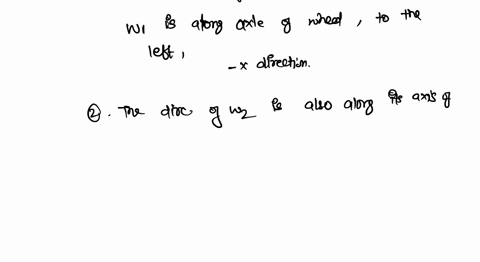 w1 is along axle of wheel, to the
left,
-x direction.
②. The dirc of w2 is also along its axis of